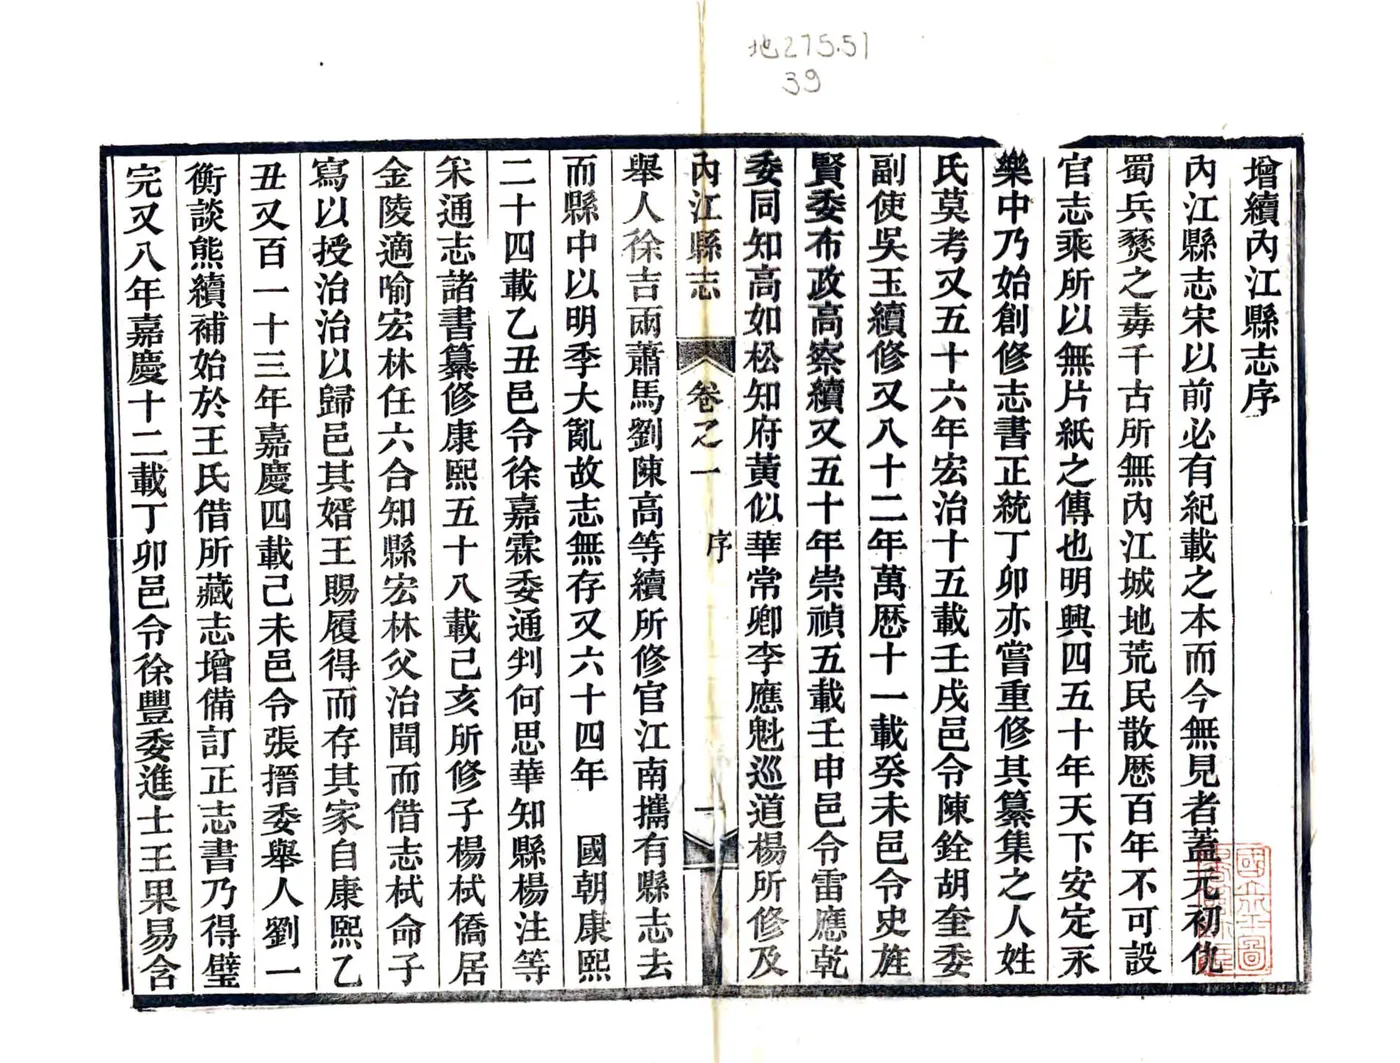 地275.51
39
增續內江縣志序
內江縣志宋以前必有紀載之本而今無見者蓋元初仇
蜀兵燹之毒千古所無內江城地荒民散歷百年不可設
官志乘所以無片紙之傳也明興四五十年天下安定永
樂中乃始創修志書正統丁卯亦嘗重修其纂集之人姓
氏莫考又五十六年宏治十五載壬戌邑令陳銓胡奎委
副使吳玉續修又八十二年萬歷十一載癸未邑令史旌
賢委布政高察續又五十年崇禎五載壬申邑令雷應乾
委同知高如松知府黃似華常卿李應魁巡道楊所修及
內江縣志
卷之一
序
一
舉人徐吉雨蕭馬劉陳高等續所修官江南攜有縣志去
而縣中以明季大亂故志無存又六十四年 國朝康熙
二十四載乙丑邑令徐嘉霖委通判何思華知縣楊注等
采通志諸書纂修康熙五十八載己亥所修子楊栻僑居
金陵適喻宏林任六合知縣宏林父治聞而借志栻命子
寫以授治治以歸邑其婿王賜履得而存其家自康熙乙
丑又百一十三年嘉慶四載己未邑令張搢委舉人劉一
衡談熊續補始於王氏借所藏志增備訂正志書乃得璧
完又八年嘉慶十二載丁卯邑令徐豐委進士王果易含